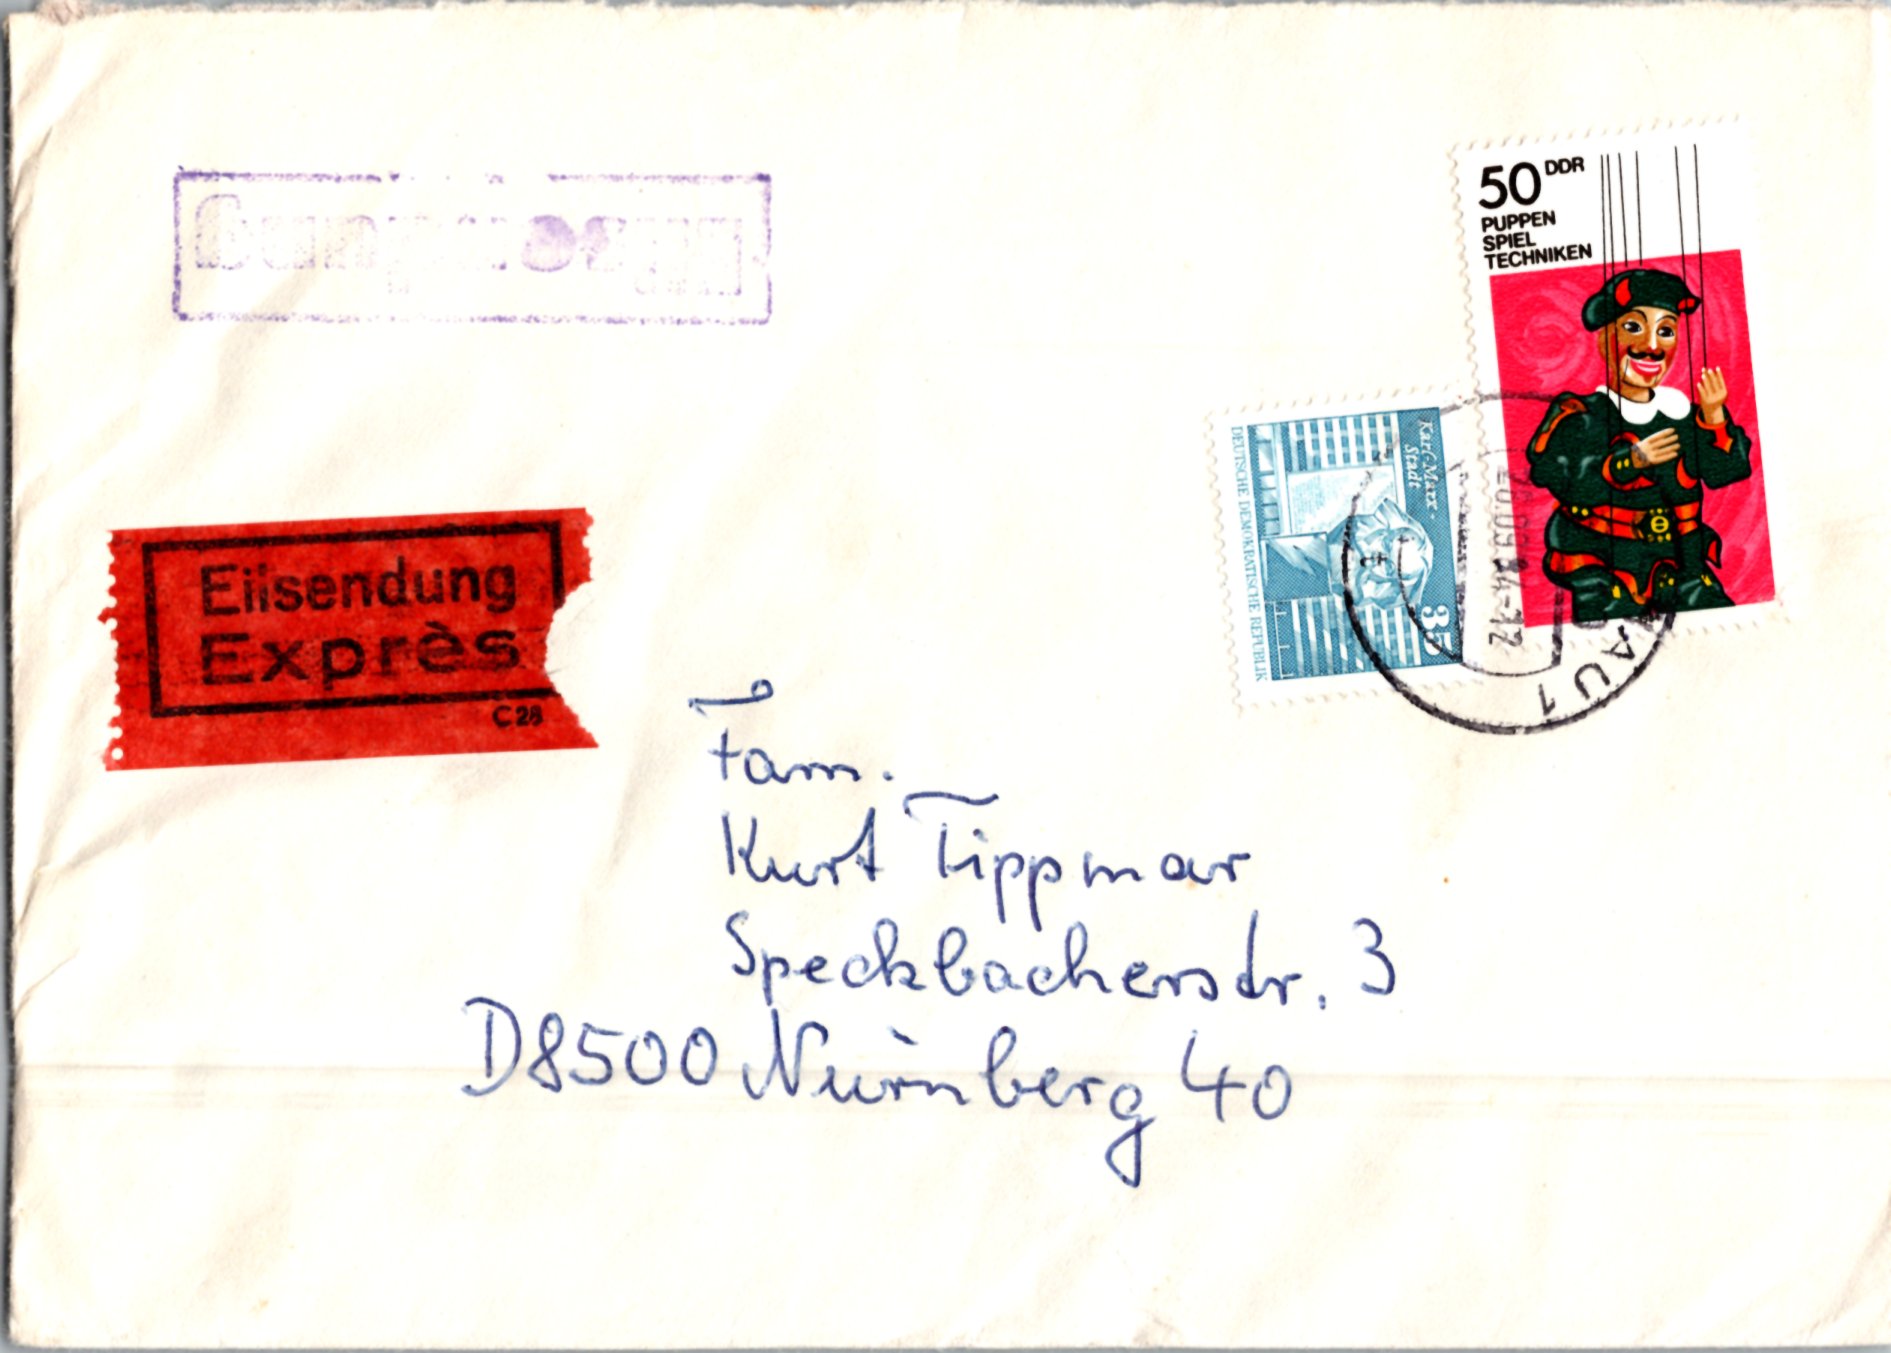 50 DDR
PUPPEN
SPIEL
TECHNIKEN
Karl-Marx-
Stadt
DEUTSCHE DEMOKRATISCHE REPUBLIK
35
20.09.84-12
AU 1
Eilsendung
Exprès
C 28
Fam.
Kurt Tippmar
Speckbacherstr. 3
D8500 Nürnberg 40